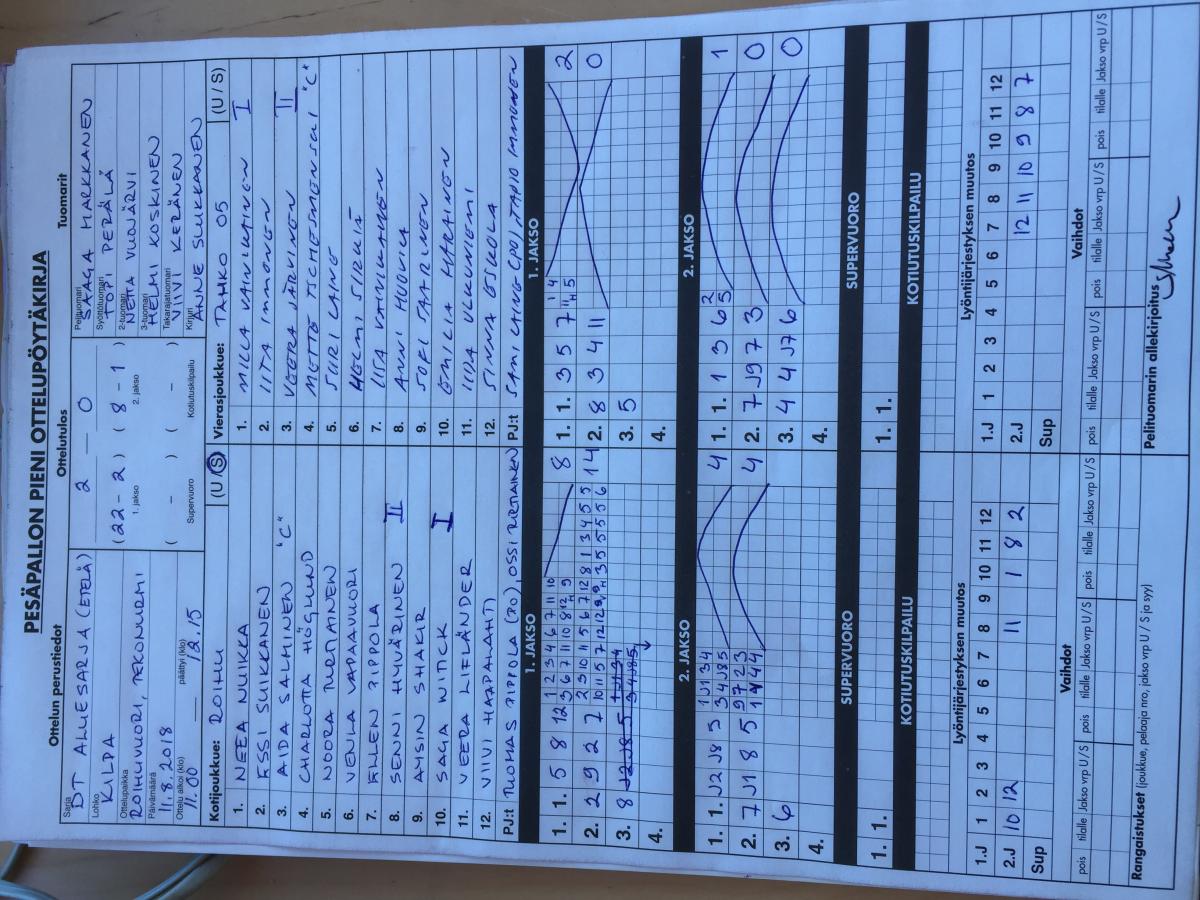 PESÄPALLON PIENI OTTELUPÖYTÄKIRJA
Ottelun perustiedot
Ottelutulos
Tuomarit
Sarja
DT ALUESARJA (ETELÄ)
Lohko
KILPA
Ottelupaikka
ROIHUVUORI, TEKONURMI
Päivämäärä
11.8.2018
Ottelu alkoi (klo)
11.00
päättyi (klo)
12.15
2 — 0
(22 - 2) (8 - 1)
1. jakso
2. jakso
( - ) ( - )
Supervuoro
Kotiutuskilpailu
Pelituomari
SAAGA HARKKANEN
Syöttötuomari
TOPI PERÄLÄ
2-tuomari
NETTA VUOJÄRVI
3-tuomari
HELMI KOSKINEN
Takarajatuomari
VIIVI KERÄNEN
Kirjuri
ANNE SUIKKANEN
Kotijoukkue: ROIHU (U / S)
1. NEEA NUIKKA
2. ESSI SUIKKANEN
3. ADA SALMINEN "C"
4. CHARLOTTA HÖGLUND
5. NOORA
6. VENLA VAPAAVUORI
7. ELLEN PIPPOLA
8. SENNI HYVÄRINEN II
9. AMSIN SHAKIR
10. SAGA WITICK I
11. VEERA LIFLÄNDER
12. VIIVI HAAPALAHTI
PJ:t TUOMAS PIPPOLA (PO), OSSI
Vierasjoukkue: TAHKO 05 (U / S)
1. MILLA VAINIKAINEN I
2. IITA IMMONEN
3. VEERA JÄRVINEN II
4. METTE "C"
5. SURI LAINE
6. HELMI SIRKIÄ
7. LISA VAINIKAINEN
8. ANNI HUOVILA
9. SOFI SAARINEN
10. EMILIA HARAINEN
11. IIDA ULKUNIEMI
12. SINNA ESKOLA
PJ:t SAMI LAINE (PO), TAPIO IMMONEN
1. JAKSO
1. 1. 5 8 12 8
2. 2 9 2 7 14
3. 8
4.
1. JAKSO
1. 1. 3 5 7 2
2. 8 3 4 11 0
3. 5
4.
2. JAKSO
1. 1. J2 J8 5 4
2. 7 J1 8 5 4
3. 6
4.
2. JAKSO
1. 1. 1 3 6 1
2. 7 J9 7 3 0
3. 4 4 J7 6 0
4.
SUPERVUORO
1. 1.
SUPERVUORO
1. 1.
KOTIUTUSKILPAILU
KOTIUTUSKILPAILU
Lyöntijärjestyksen muutos
1.J 1 2 3 4 5 6 7 8 9 10 11 12
2.J 10 12 11 1 8 2
Sup
Lyöntijärjestyksen muutos
1.J 1 2 3 4 5 6 7 8 9 10 11 12
2.J 12 11 10 9 8 7
Sup
Vaihdot
pois tilalle Jakso vrp U / S pois tilalle Jakso vrp U / S pois tilalle Jakso vrp U / S
Vaihdot
pois tilalle Jakso vrp U / S pois tilalle Jakso vrp U / S pois tilalle Jakso vrp U / S
Rangaistukset (joukkue, pelaaja nro, jakso vrp U / S ja syy)
Pelituomarin allekirjoitus